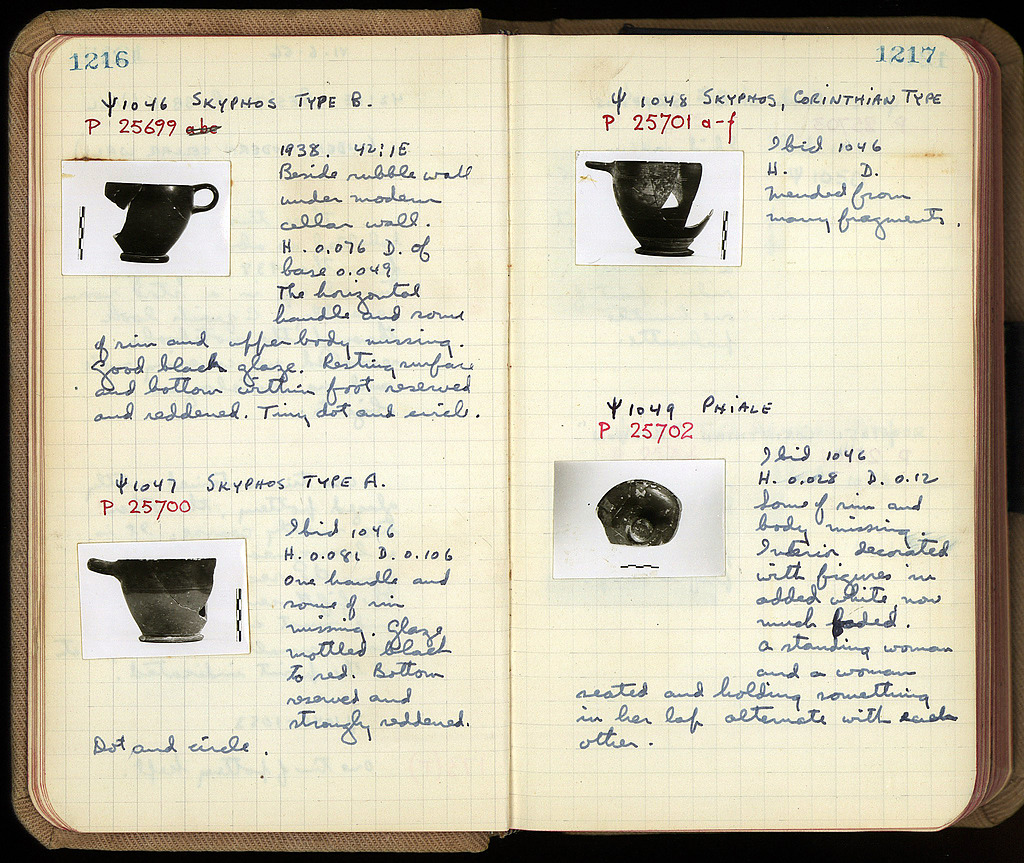 1216
Ψ 1046 SKYPHOS TYPE B.
P 25699 abc
1938. 42:1E
Beside rubble wall
under modern
cellar wall.
H. 0.076 D. of
base 0.049
The horizontal
handle and some
of rim and upper body missing.
Good black glaze. Resting surface
and bottom within foot reserved
and reddened. Tiny dot and circle.
Ψ 1047 SKYPHOS TYPE A.
P 25700
Ibid 1046
H. 0.081 D. 0.106
One handle and
some of rim
missing. Glaze
mottled black
to red. Bottom
reserved and
strongly reddened.
Dot and circle.
1217
Ψ 1048 SKYPHOS, CORINTHIAN TYPE
P 25701 a-f
Ibid 1046
H. D.
Mended from
many fragments.
Ψ 1049 PHIALE
P 25702
Ibid 1046
H. 0.028 D. 0.12
Some of rim and
body missing.
Interior decorated
with figures in
added white now
much faded.
A standing woman
and a woman
seated and holding something
in her lap alternate with each
other.